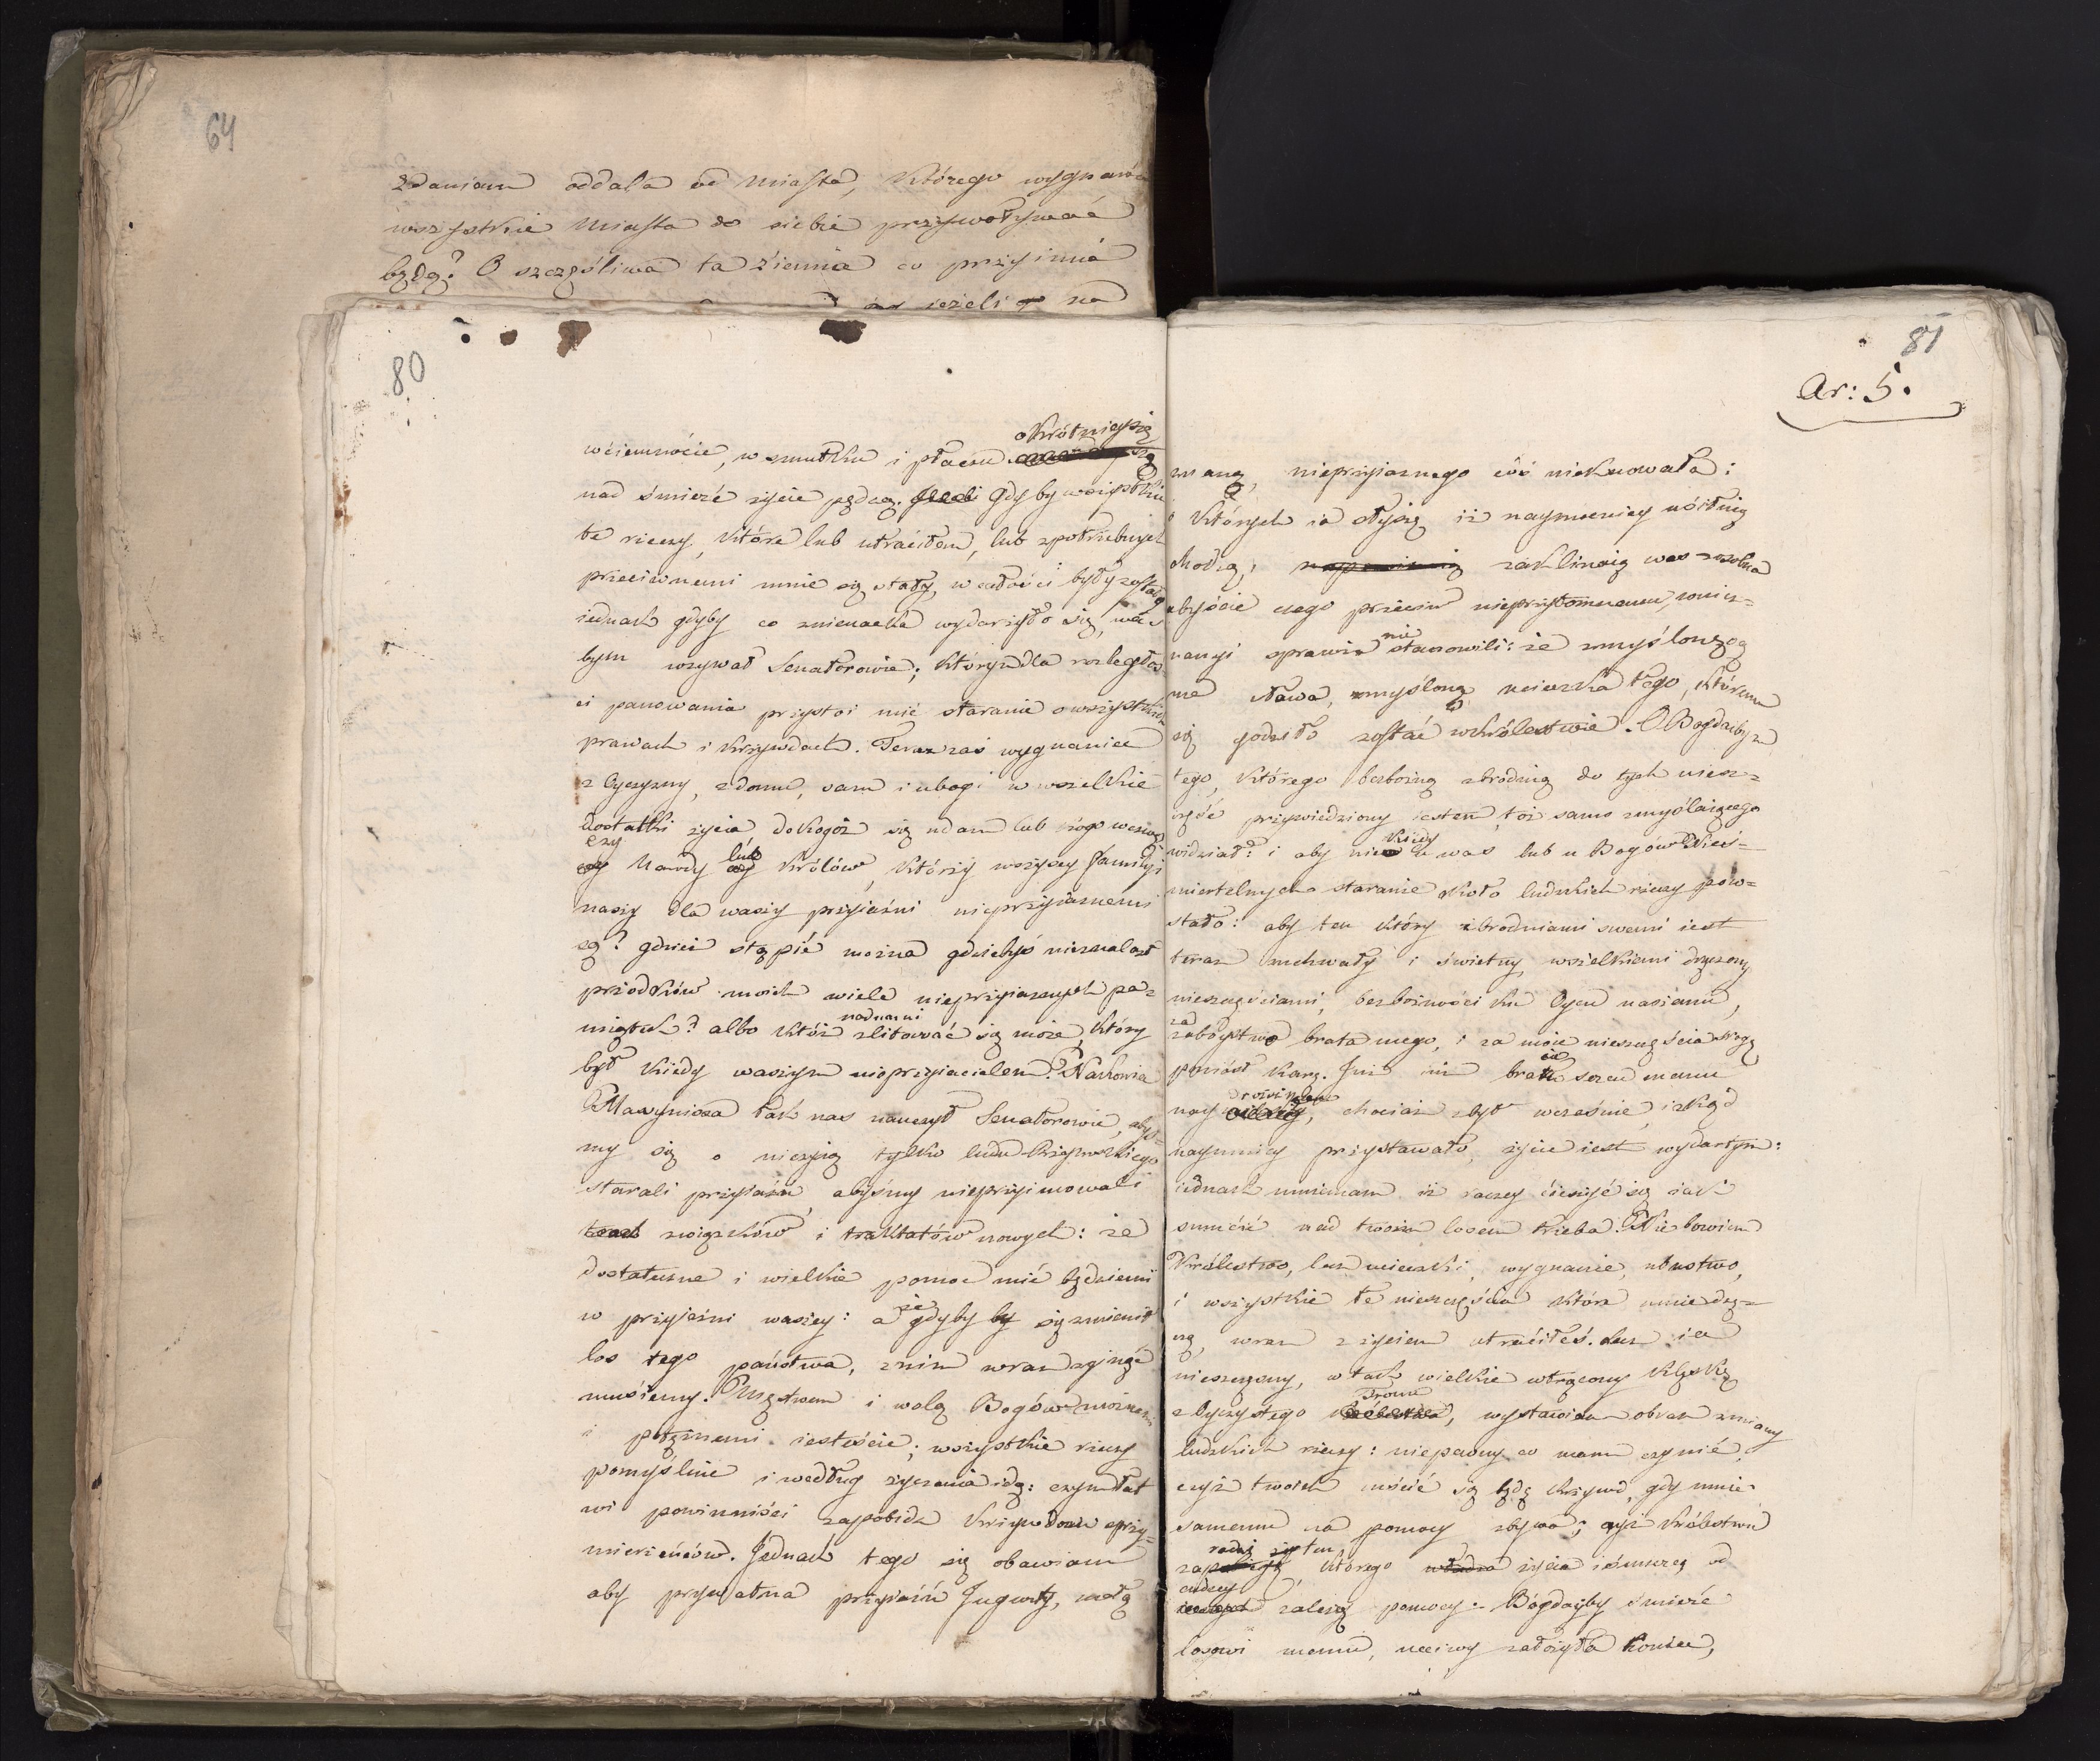 64
zdaniam oddala od Miasta, którego wygnańca
wszystkie Miasta do siebie przywoływać
będą? O szczęśliwa ta ziemia co przyimie
jeżeli na
80
wciemnocie, w smutku i płaczu okrótnieyszą
nad śmierć życie pędcą. Gdyby wszystkie
te rzeczy, które lub utraciłem, lub zpotrzebnych
przeciwnemi mnie się stały, w całości były zostały
iednak gdyby co znienacka wydarzyło się, was
bym wzywał Senatorowie; którym dla rozległoś
ci panowania przystoi mieć staranie o wszystkich
prawach i krzywdach. Teraz zaś wygnaniec
z Oyczyzny, z domu, sam i ubogi w wszelkie
dostatki życia dokogoż się udam lub kogo wezwę
czy Narody lub Królów, którzy wszyscy familyi
naszy dla waszy przyiaźni nieprzyiaznemi
są? gdzież stąpić można gdziebyś nieznalazł
przodków moich wiele nieprzyiaznych pa=
miątek? albo któż nadnami zlitować się może, który
był kiedy waszym nieprzyiacielem? Nakoniec
Massynissa tak nas nauczył Senatorowie, abyś=
my się o niczyią tylko ludu Rzymskiego
starali przyiaźń, abyśmy nieprzyimowali
związków i traktatów nowych: że
dostateczne i wielkie pomoce mieć będziemy
w przyiaźni waszey: a że gdyby się zmienił
los tego państwa, znim wraz zginąć
musiemy. Męstwem i wolą Bogów możnemi
i potężnemi iesteście; wszystkie rzeczy
pomyślnie i według życzenia idą: czym łat
wi powinniści zapobiedz krzywdom sprzy=
mierzeńców. Jednak tego się obawiam
aby prywatna przyiaźń Jugurty, mało
81
Ar: 5.
znana, nieprzyiaznego coś nieknowała:
o których ia słyszę iż naymocniey usilnią
chodzą, zaklinaią was z osobna
abyście czego przeciw nieprzytomnemu, wniez=
nanyi sprawie nie stanowili: że zmyśloną
me słowa, zmyślona ucieczka tego, któremu
się godziło zostać wkrólestwie. O Bogdaibym
tego, którego bezbożną zbrodnią do tych niesz=
część przywiedziony iestem, toż samo zmyślaiącego
widział: i aby kiedy u was lub u Bogów Nieś=
miertelnych staranie około ludzkich rzeczy pow=
stało: aby ten który zbrodniami swemi iest
teraz zuchwały i świetny wszelkiemi dręczony
nieszczęściami, bezbożności ku Oycu naszemu,
za zabóystwo brata mego, i za moie nieszczęścia srogą
poniósł karę. Już iuż bracie sercu memu
nay droższy, chociaż zbyt wcześnie, i zkąd
naymniey przystawało, życie iest wydartym:
iednak mniemam iż raczey cieszyć się iak
smucić nad twoim losem trzeba. Nie bowiem
Królestwo, lecz ucieczki, wygnanie, ubustwo,
i wszystkie te nieszczęścia które mnie drę=
czą, wraz z życiem utraciłeś. Lecz ia
nieszczęsny, w tak wielkie wtrącony klęski
z Oyczystego tronu, wystawiam obraz zmiany
ludzkich rzeczy: niepewny co mam czynić,
czyż twoich mścić się będę krzywd, gdy mnie
samemu na pomocy zbywa; czyż Królestwu
radzić, którego życia i śmierci od
cudzey zależą pomocy. Bogdayby śmierć
losowi memu, ucciwy założyła koniec,